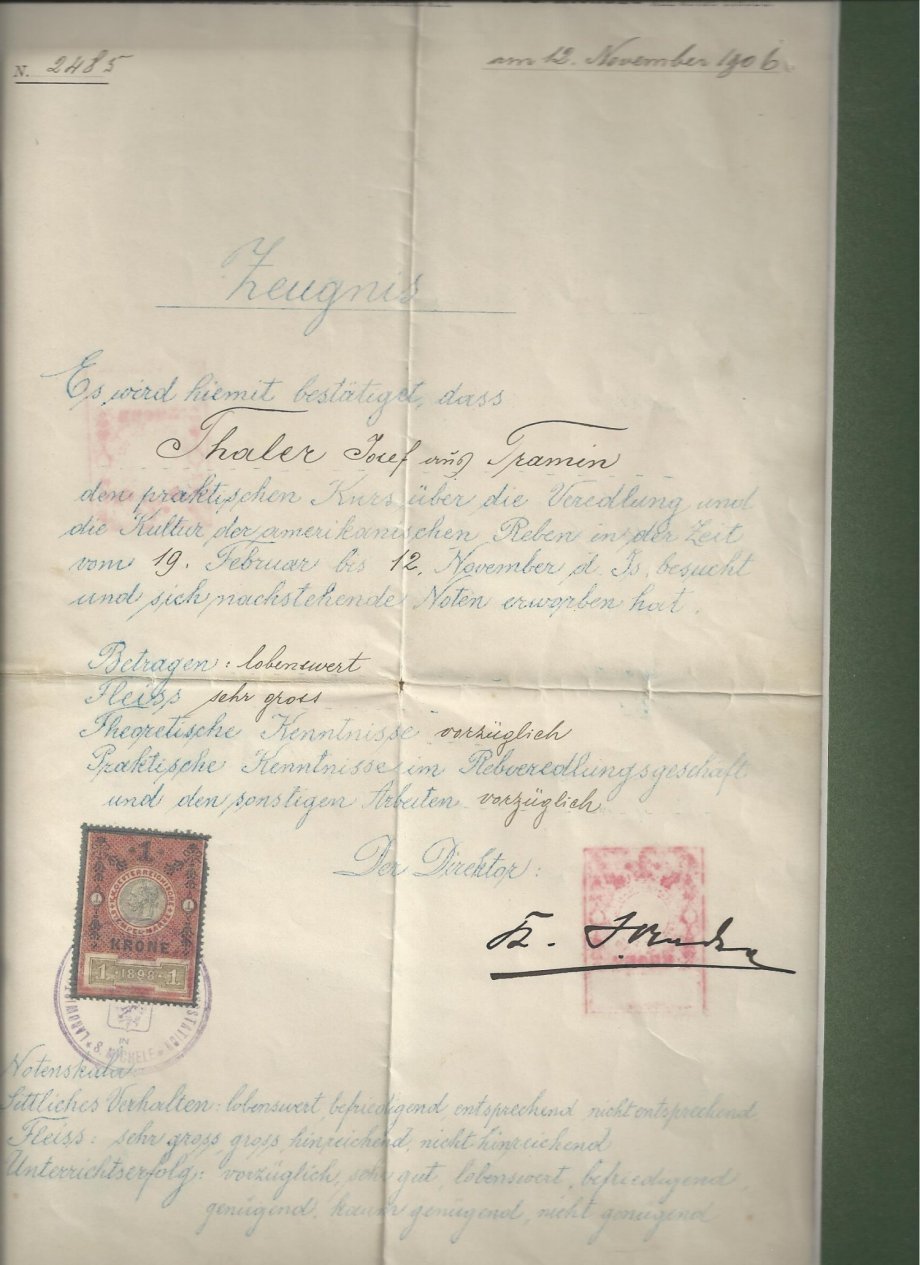 N. 2485
am 12. November 1906.
Zeugnis
Es wird hiemit bestätiget, dass
Thaler Josef aus Tramin
den praktischen Kurs über die Veredlung und
die Kultur der amerikanischen Reben in der Zeit
vom 19. Februar bis 12. November d. Js. besucht
und sich nachstehende Noten erworben hat.
Betragen: lobenswert
Fleiss sehr gross
Theoretische Kenntnisse vorzüglich
Praktische Kenntnisse im Rebveredlungsgeschäft
und den sonstigen Arbeiten vorzüglich
Der Direktor:
K.
1
K.K. OESTERREICHISCHE STEMPEL-MARKE
1 1
KRONE
1 · 1898 · 1
S. MICHELE
Notenskala
Sittliches Verhalten: lobenswert, befriedigend entsprechend nicht entsprechend
Fleiss: sehr gross, gross, hinreichend, nicht hinreichend
Unterrichtserfolg: vorzüglich, sehr gut, lobenswert, befriedigend,
genügend, kaum genügend, nicht genügend